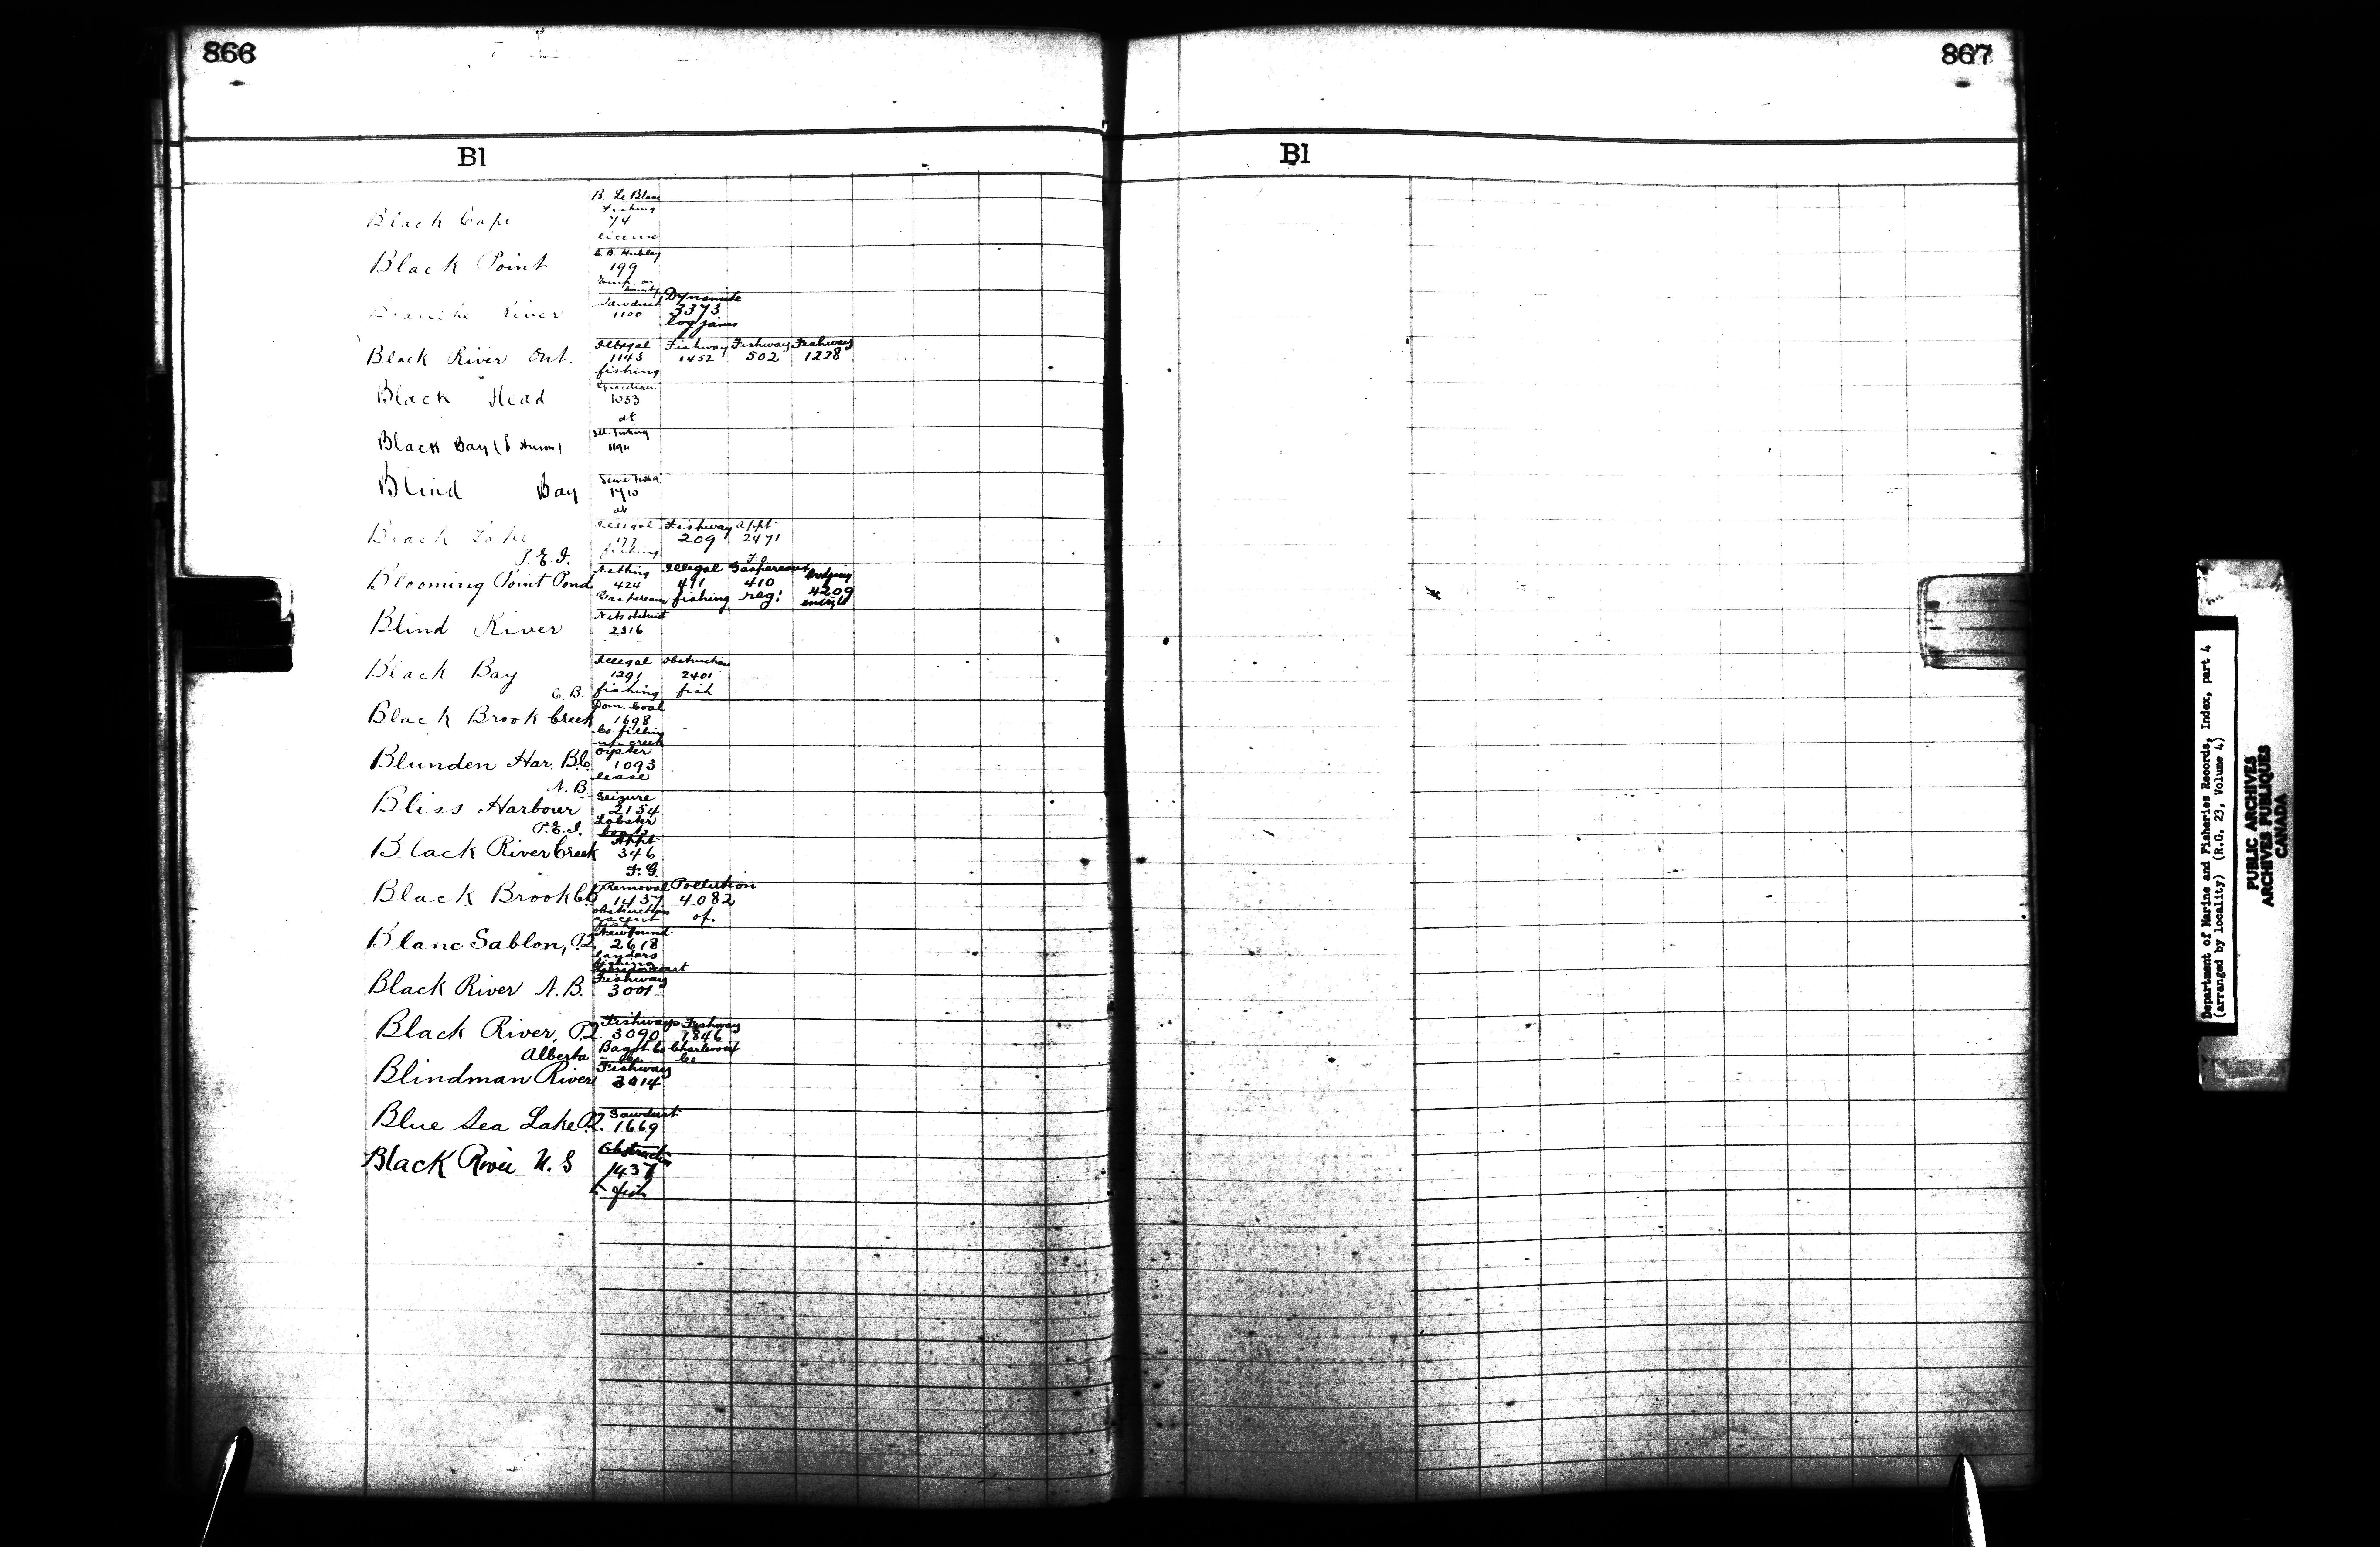 866
867
Bl
Bl
B. Le Blanc
Fishing
Black Cape 74
license
C. B. Hubley
Black Point 199
County
Sawdust Dynamite
Blanche River 1100 3373
log jams
Illegal Fishway Fishway Fishway
Black River Ont. 1143 1452 502 1228
fishing
Guardian
Black Head 1053
at
Black Bay
Blind Bay 1710
at
Illegal Fishway Appt
Black Lake 177 209 2471
fishing F.
P.E.I. Netting Illegal Gaspereaux
Blooming Point Pond 424 411 410 4209
Gaspereau fishing reg:
Nets obstruct
Blind River 2316
Illegal Obstruction
Black Bay 1291 2401
fishing fish
C. B. Dom. Coal
Black Brook Creek 1698
Co. filling
up creek
Oyster
Blunden Har. B.C. 1093
lease
N. B. Seizure
Bliss Harbour 2154
Lobster
boats
P.E.I. Appt
Black River Creek 346
F. G.
Removal Pollution
Black Brook C.B. 1437 4082
obstructions of.
ascent
Newfound
Blanc Sablon, P.Q. 2618
landers
fishing
Labrador coast
Fishway
Black River N.B. 3001
Fishways Fishway
Black River, P.Q. 3090 1846
Bagot Co Charlevoix
Co
Alberta Fishway
Blindman River 3014
Sawdust
Blue Sea Lake P.Q. 1669
Obstruction
Black River N. S 1437
fish
Department of Marine and Fisheries Records, Index, part 4
(arranged by locality) (R.G. 23, Volume 4)
PUBLIC ARCHIVES
ARCHIVES PUBLIQUES
CANADA